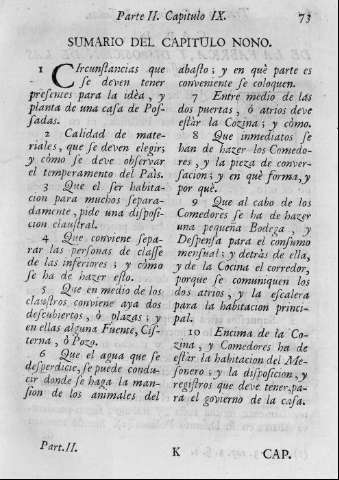 Parte II. Capitulo IX. 73
SUMARIO DEL CAPITULO NONO.
1 CIrcunstancias que
se deven tener
presentes para la idèa, y
planta de una casa de Pos-
sadas.
2 Calidad de mate-
riales, que se deven elegir;
y còmo se deve observar
el temperamento del Païs.
3 Que el ser habita-
cion para muchos separa-
damente, pide una disposi-
cion claustral.
4 Que conviene sepa-
rar las personas de classe
de las inferiores; y còmo
se ha de hazer esto.
5 Que en medio de los
claustros conviene aya dos
descubiertos, ò plazas; y
en ellas alguna Fuente, Cis-
terna, ò Pozo.
6 Que el agua que se
desperdicie, se puede condu-
cir donde se haga la man-
sion de los animales del
abasto; y en què parte es
conveniente se coloquen.
7 Entre medio de las
dos puertas, ò atrios deve
estàr la Cozina; y còmo.
8 Que inmediatos se
han de hazer los Comedo-
res, y la pieza de conver-
sacion; y en què forma, y
por què.
9 Que al cabo de los
Comedores se ha de hazer
una pequeña Bodega, y
Despensa para el consumo
mensual; y detràs de ella,
y de la Cocina el corredor,
porque se comuniquen los
dos atrios, y la escalera
para la habitacion princi-
pal.
10 Encima de la Co-
zina, y Comedores ha de
estàr la habitacion del Me-
sonero; y la disposicion, y
registros que deve tener, pa-
ra el govierno de la casa.
Part.II. K CAP.